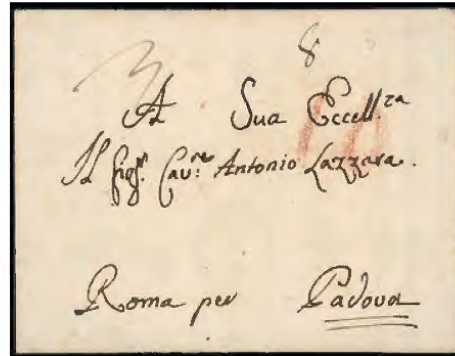 8
A Sua Eccell.za
Il Sig.r Cav.re Antonio Lazzara.
Roma per Padova